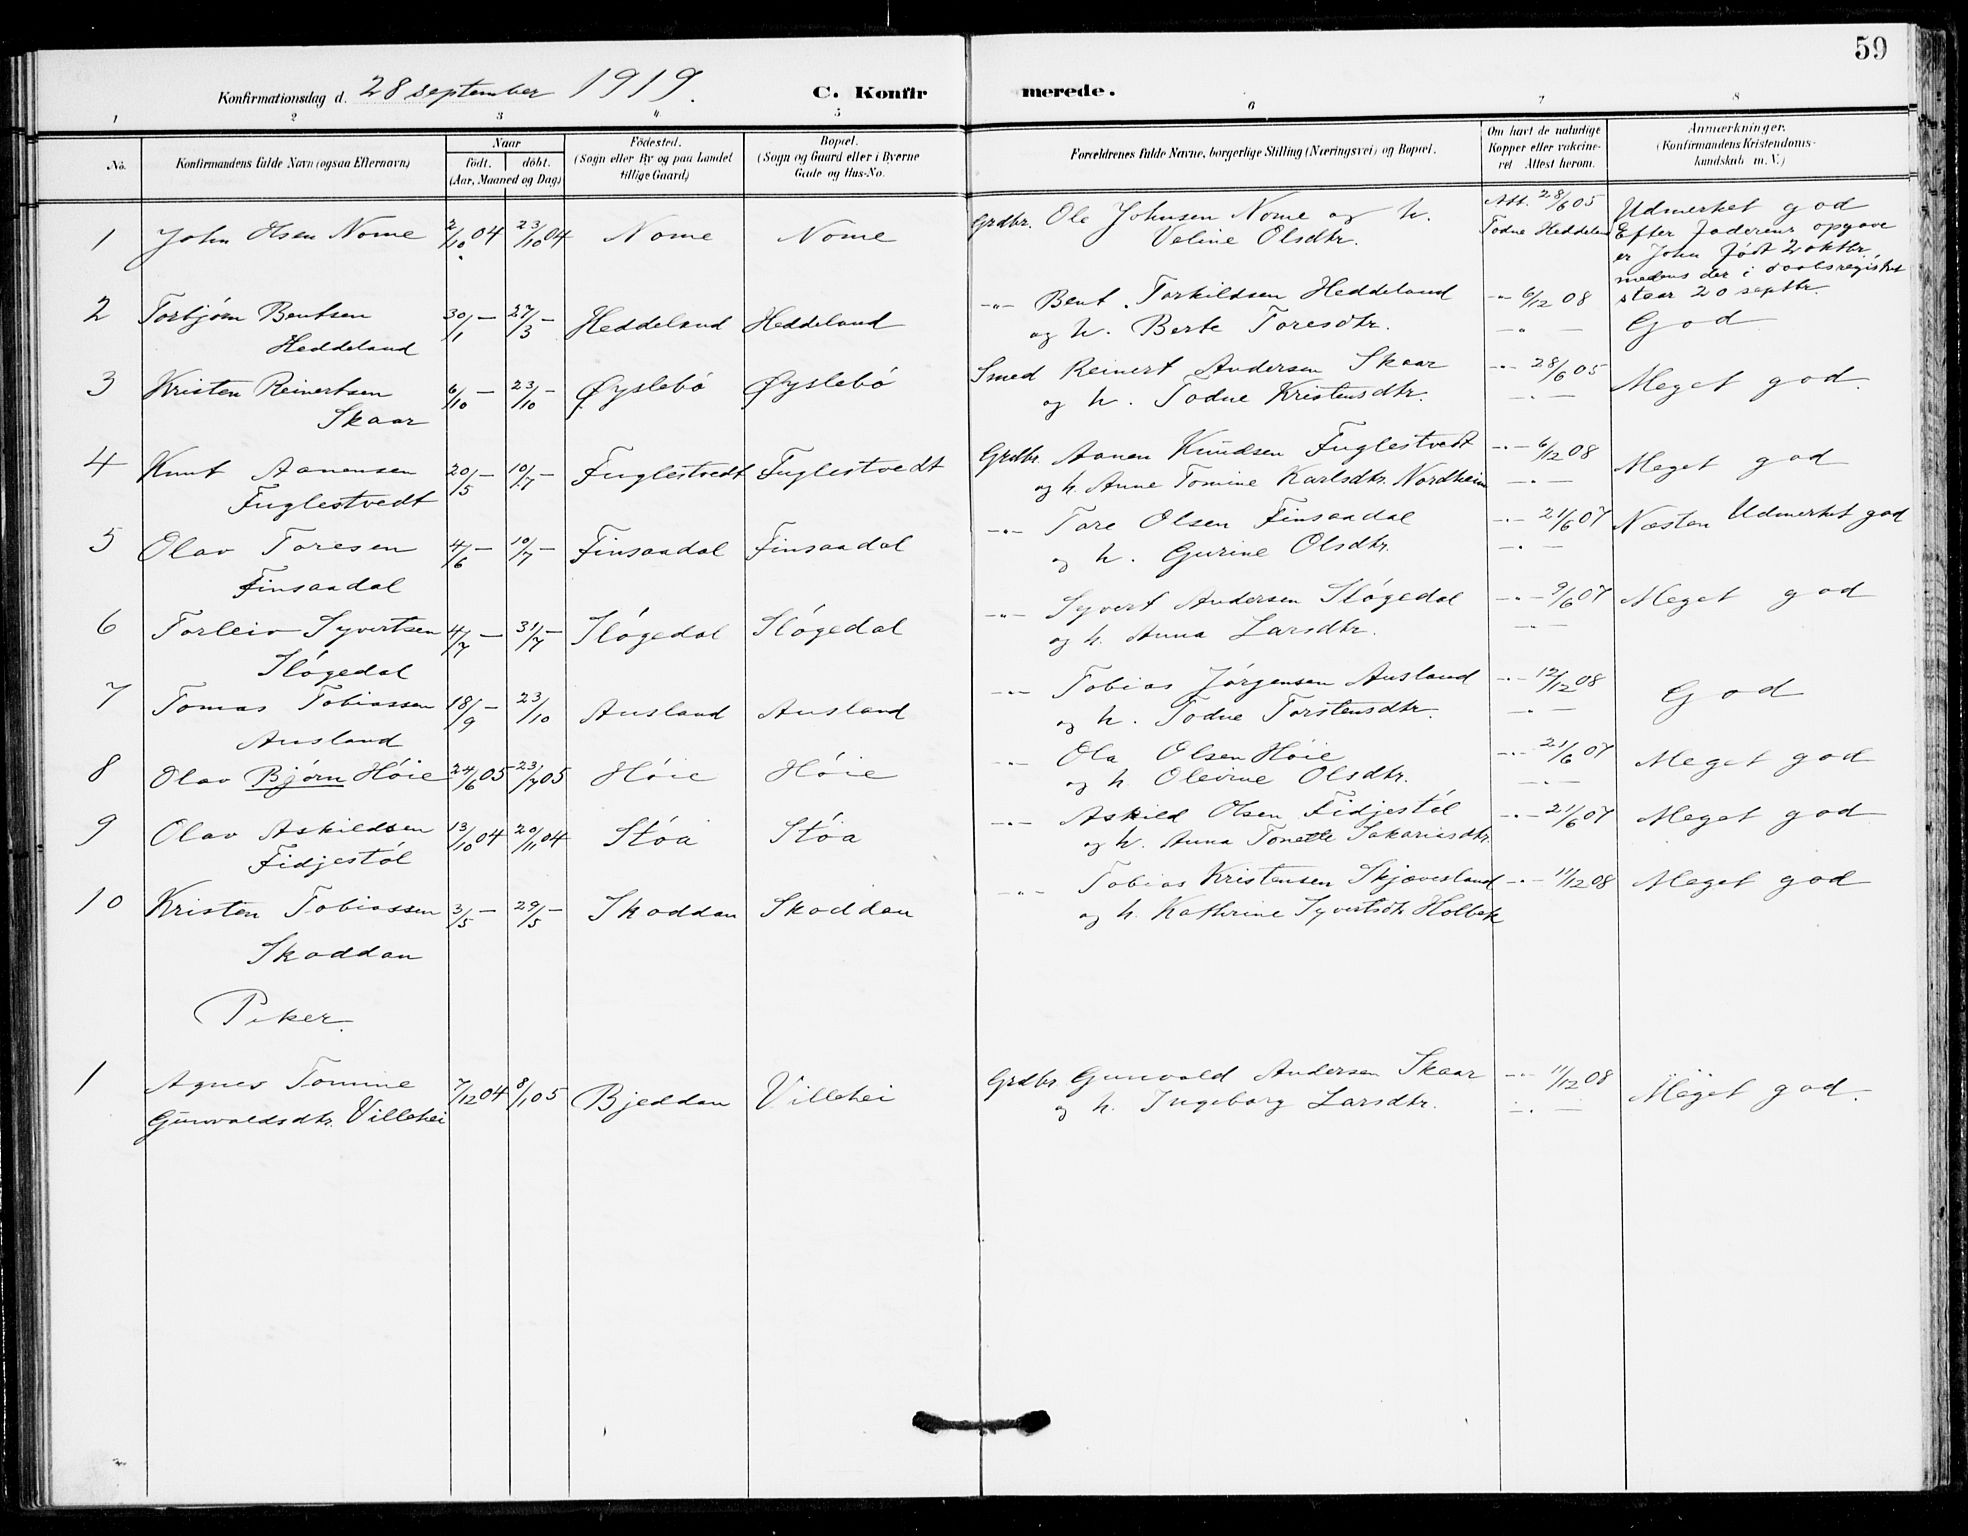 59
Konfirmationsdag d. 28 september 1919. C. Konfirmerede.
1 2 3 4 5 6 7 8
No. Konfirmandens fulde Navn (ogsaa Efternavn) Naar født. døbt. (Aar, Maaned og Dag) Fødested. (Sogn eller By og paa Landet tillige Gaard.) Bopæl. (Sogn og Gaard eller i Byerne Gade og Hus-No. Forældrenes fulde Navne, borgerlige Stilling (Næringsvei) og Bopæl. Om havt de naturlige Kopper eller vakcineret Attest herom. Anmærkninger. (Konfirmandens Kristendomskundskab m. V.)
1 John Olsen Nome 2/10 04 23/10 04 Nome Nome Grdbr. Ole Johnsen Nome og h. Att. 28/6 05 Udmerket god
Valine Olsdtr. Todne Heddeland Efter faderens opgave
er John født 2 oktbr.
medens der i daabsregistret
staar 20 septbr.
2 Torbjørn Bentsen 30/1 — 27/3 — Heddeland Heddeland -"- Bent Torkildsen Heddeland -"- 6/12 08 God
Heddeland og h. Berte Toresdtr. -"-
3 Kristen Reinertsen 6/10 — 23/10 — Øyslebø Øyslebø Smed Reinert Andersen Skaar -"- 28/6 05 Meget god.
Skaar og h. Todne Kristensdtr. -"-
4 Knut Aanensen 20/5 — 10/7 — Fuglestvedt Fuglestvedt Grdbr. Aanen Knudsen Fuglestvedt -"- 6/12 08 Meget god
Fuglestvedt og h. Anne Tomine Karlsdtr. Nordheim -"-
5 Olav Toresen 4/6 — 10/7 — Finsaadal Finsaadal -"- Tore Olsen Finsaadal -"- 21/6 07 Næsten Udmerket god
Finsaadal og h. Gurine Olsdtr. -"-
6 Torleiv Syvertsen 4/7 — 31/7 — Sløgedal Sløgedal -"- Syvert Andersen Sløgedal -"- 9/6 07 Meget god
Sløgedal og h. Anna Larsdtr. -"-
7 Tomas Tobiassen 18/9 — 23/10 Ausland Ausland -"- Tobias Jørgensen Ausland -"- 12/12 08 God
Ausland og h. Todne Torstensdtr. -"-
8 Olav Bjørn Høie 24/6 05 23/7 05 Høie Høie -"- Ola Olsen Høie -"- 21/6 07 Meget god
og h. Olevine Olsdtr. -"-
9 Olav Askildsen 13/10 04 20/11 04 Støa Støa -"- Askild Olsen Fidjestøl -"- 21/6 07 Meget god
Fidjestøl og h. Anna Tonette Sakariasdtr.
10 Kristen Tobiassen 3/5 — 29/5 — Skoddan Skoddan -"- Tobias Kristensen Skjævesland -"- 11/12 08 Meget god
Skoddan og h. Kathrine Syvertsdtr Holbek
Piker.
1 Agnes Tomine 7/12 04 8/1 05 Bjeddan Villehei Grdbr Gunvald Andersen Skaar -"- 11/12 08 Meget god.
Gunvaldsdtr. Villehei og h. Ingeborg Larsdtr. -"-